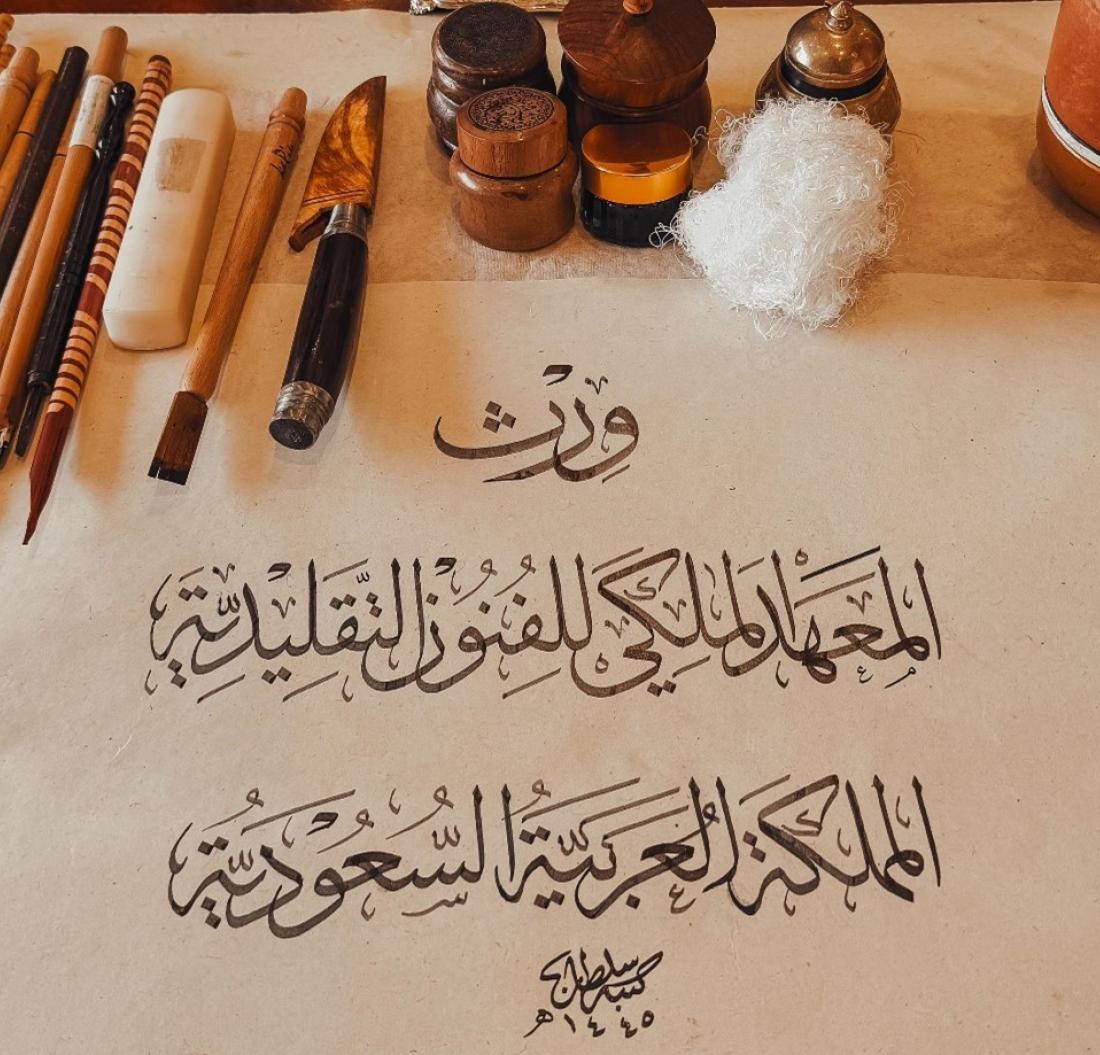 وِرْث
المَعهَد المَلَكي للفُنُون التَّقلِيدِيَّة
المملكة العَرَبيَّةُ السُّعُوديَّةُ
كتبه سلطان
١٤٤٥ هـ